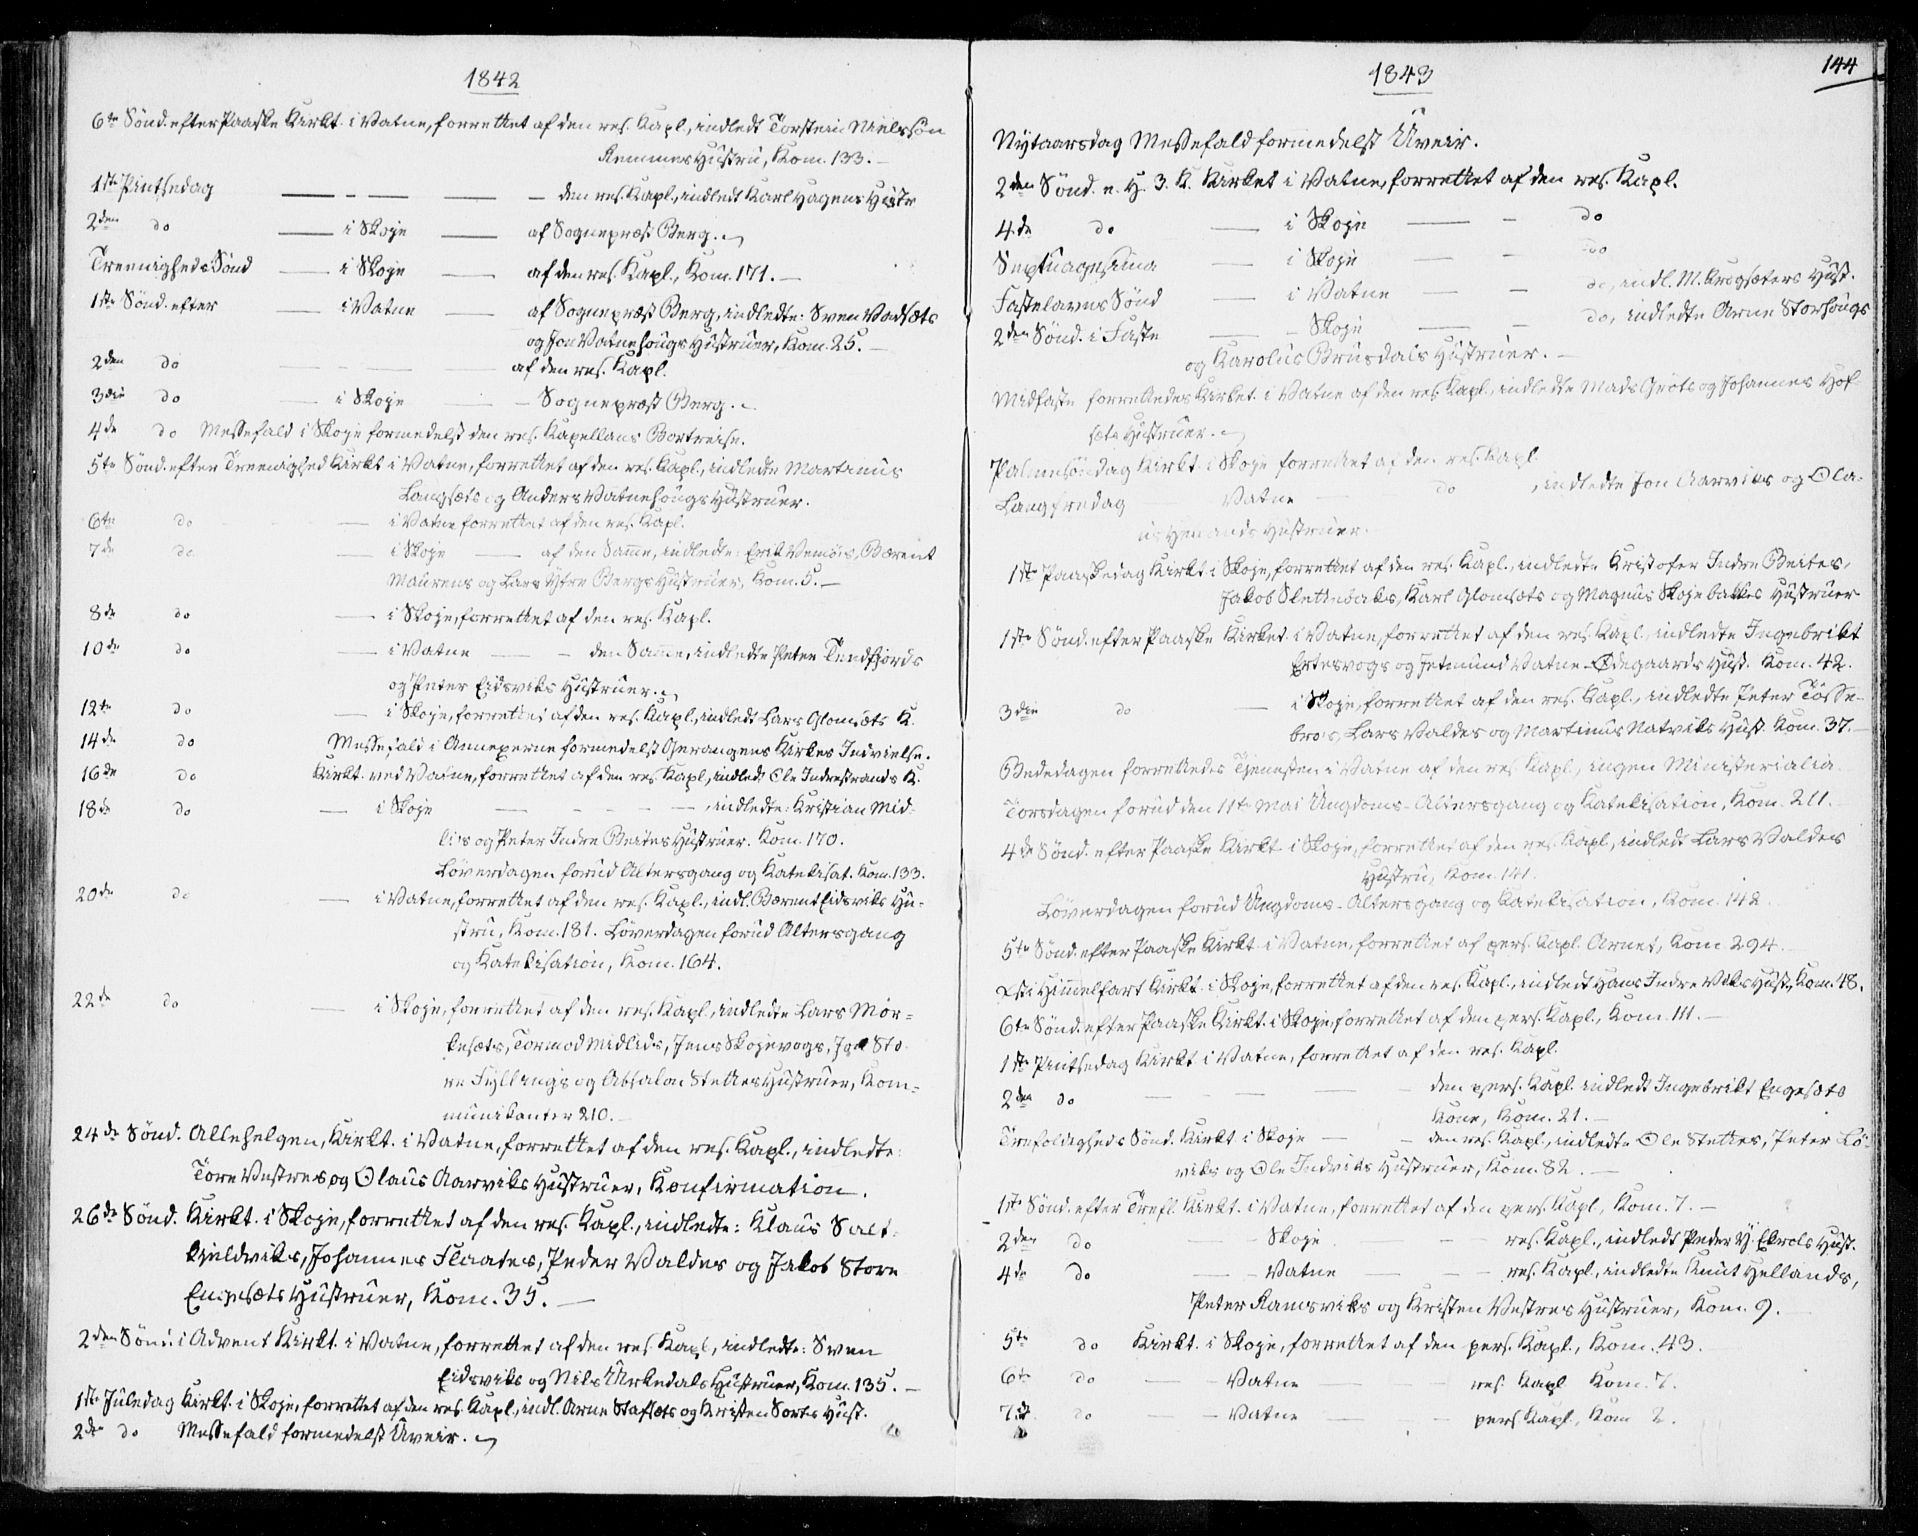 1842
6te Sönd. efter Paaske Kirkt. i Vatne, forrettet af den res. Kapl., indledt Torstein Nielssøn
Remmes Hustru, Kom. 133. —
1ste Pintsedag — — — — den res. Kapl., indledt Karl Hagens Hustr
2den do — i Skoje — af Sognepræst Berg.
Treenigheds Sönd — i Skoje — af den res. Kapl., Kom. 171. —
1ste Sönd. efter — i Vatne — af Sognepræst Berg, indledte: Sven Vadsæts
og Jon Vatnehougs Hustruer, Kom. 25. —
2den do — — — af den res. Kapl.
3die do — i Skoje — Sognepræst Berg.
4de do Messefald i Skoje formedelst den res. Kapellans Bortreise.
5te Sönd. efter Treenighed Kirkt i Vatne, forrettet af den res. Kapl., indledte Martinus
Langsæts og Anders Vatnehougs Hustruer.
6te do — i Vatne forrettet af den res. Kapl.
7de do — i Skoje — af den Samme, indledte: Erik Vemöis, Bærent
Maurens og Lars Ytre Bergs Hustruer, Kom. 5. —
8de do — i Skoje, forrettet af den res. Kapl.
10de do — i Vatne — — den Samme, indledte Peter Tendfjords
og Peter Eidsviks Hustruer.
12te do — i Skoje, forrettet af den res. Kapl., indledt Lars Glomsæts K.
14de do Messefald i Annexerne formedelst Gerangens Kirkes Indvielse.
16de do Kirkt. ved Vatne, forrettet af den res. Kapl., indledt Ole Indrestrands K.
18de do — i Skoje — — — —, indledte: Kristian Mid-
lis og Peter Indre Beites Hustruer. Kom. 170.
Löverdagen forud Altersgang og Katekisat. Kom. 133.
20de do — i Vatne, forrettet af den res. Kapl., indl. Bærent Eidsviks Hu-
stru, Kom. 181. Löverdagen forud Altersgang
og Katekisation, Kom. 164.
22de do — i Skoje, forrettet af den res. Kapl., indledte Lars Mör-
kesæts, Tormod Midlids, Jens Skojevogs, Sto-
re Fyllings og Absalon Stettes Hustruer, Kom-
munikanter 210. —
24de Sönd. Allehelgen, Kirkt. i Vatne, forrettet af den res. Kapl., indledte:
Tore Vestres og Olaus Aarviks Hustruer, Konfirmation.
26de Sönd. Kirkt. i Skoje, forrettet af den res. Kapl., indledte: Klaus Salt-
kjeldviks, Johannes Flaates, Peder Valdes og Jakob Store
Engesæts Hustruer, Kom. 35. —
2den Sönd. i Advent Kirkt. i Vatne, forrettet af den res. Kapl., indledte: Sven
Eidsviks og Nils Urkedals Hustruer, Kom. 135. —
1ste Juledag Kirkt. i Skoje, forrettet af den res. Kapl., indl. Arne Stafsæts og Kristen Sortes Hust.
2den do Messefald formedelst Uveir.
1843
144
Nytaarsdag Messefald formedelst Uveir.
2den Sönd. e. H. 3. K. Kirket i Vatne, forrettet af den res. Kapl.
4de do — i Skoje — — do
Septuagesima — i Skoje — — do
Fastelavns Sönd — i Vatne — — do, indl. M. Krogsæters Hust.
2den Sönd. i Faste — Skoje — — do, indledte Arne Storhougs
og Karolus Brusdals Hustruer. —
Midfaste forrettedes Kirket. i Vatne af den res. Kapl., indledte Mads Gröts og Johannes Hof-
sets Hustruer.
Palmesöndag Kirkt. i Skoje forrettet af den res. Kapl.
Langfredag — Vatne do, indledte Jon Aarviks og Ola-
us Hjenands Hustruer.
1ste Paaskedag Kirkt i Skoje, forrettet af den res. Kapl., indledte Kristofer Indre Beites,
Jakob Slettebaks, Karl Glomsæts og Magnus Skojebakkes Hustruer
1ste Sönd. efter Paaske Kirket. i Vatne, forrettet af den res. Kapl., indledte Ingebrikt
Ertesvogs og Jetmund Vatne-Ødegaards Hust. Kom. 42.
3die do — i Skoje, forrettet af den res. Kapl., indledte Peter Tösse-
bros, Lars Valdes og Martinus Natviks Hust. Kom. 37. —
Bededagen forrettedes Tjenesten i Vatne af den res. Kapl., ingen Ministerialia.
Torsdagen forud den 11te Mai Ungdoms-Altersgang og Katekisation, Kom. 211.
4de Sönd. efter Paaske Kirkt i Skoje, forrettet af den res. Kapl., indledt Lars Valdes
Hustru, Kom. 141.
Löverdagen forud Ungdoms-Altersgang og Katekisation, Kom. 142.
5te Sönd. efter Paaske Kirkt i Vatne, forrettet af pers. Kapl. Arnet, Kom 294.
Xsti Himmelfart Kirkt. i Skoje, forrettet af den res. Kapl., indledt Hans Indre Viks Hust., Kom. 48.
6te Sönd. efter Paaske Kirkt. i Skoje, forrettet af den pers. Kapl., Kom. 111. —
1ste Pintsedag Kirkt i Vatne, forrettet af den res. Kapl.
2den do — — — — den pers. Kapl. indledt Ingebrikt Engesæts
Kone, Kom. 21. —
Trefoldigheds Sönd. Kirkt. i Skoje — — den res. Kapl., indledte Ole Stettes, Peter Lö-
viks og Ole Indviks Hustruer, Kom. 82. —
1ste Sönd. efter Trefl. Kirkt. i Vatne, forrettet af den pers. Kapl., Kom. 7. —
2den do — — Skoje — — res. Kapl., indledt Peder Y. Ekrols Hust.
4de do — — Vatne — — res. Kapl., indledte Knut Hellands,
Peter Ramsviks og Kristen Vestres Hustruer, Kom. 9.
5te do Kirkt. i Skoje, forrettet af den pers. Kapl., Kom. 43.
6te do — — Vatne — res. Kapl Kom. 7.
7de do — — Vatne — pers. Kapl., Kom 2.